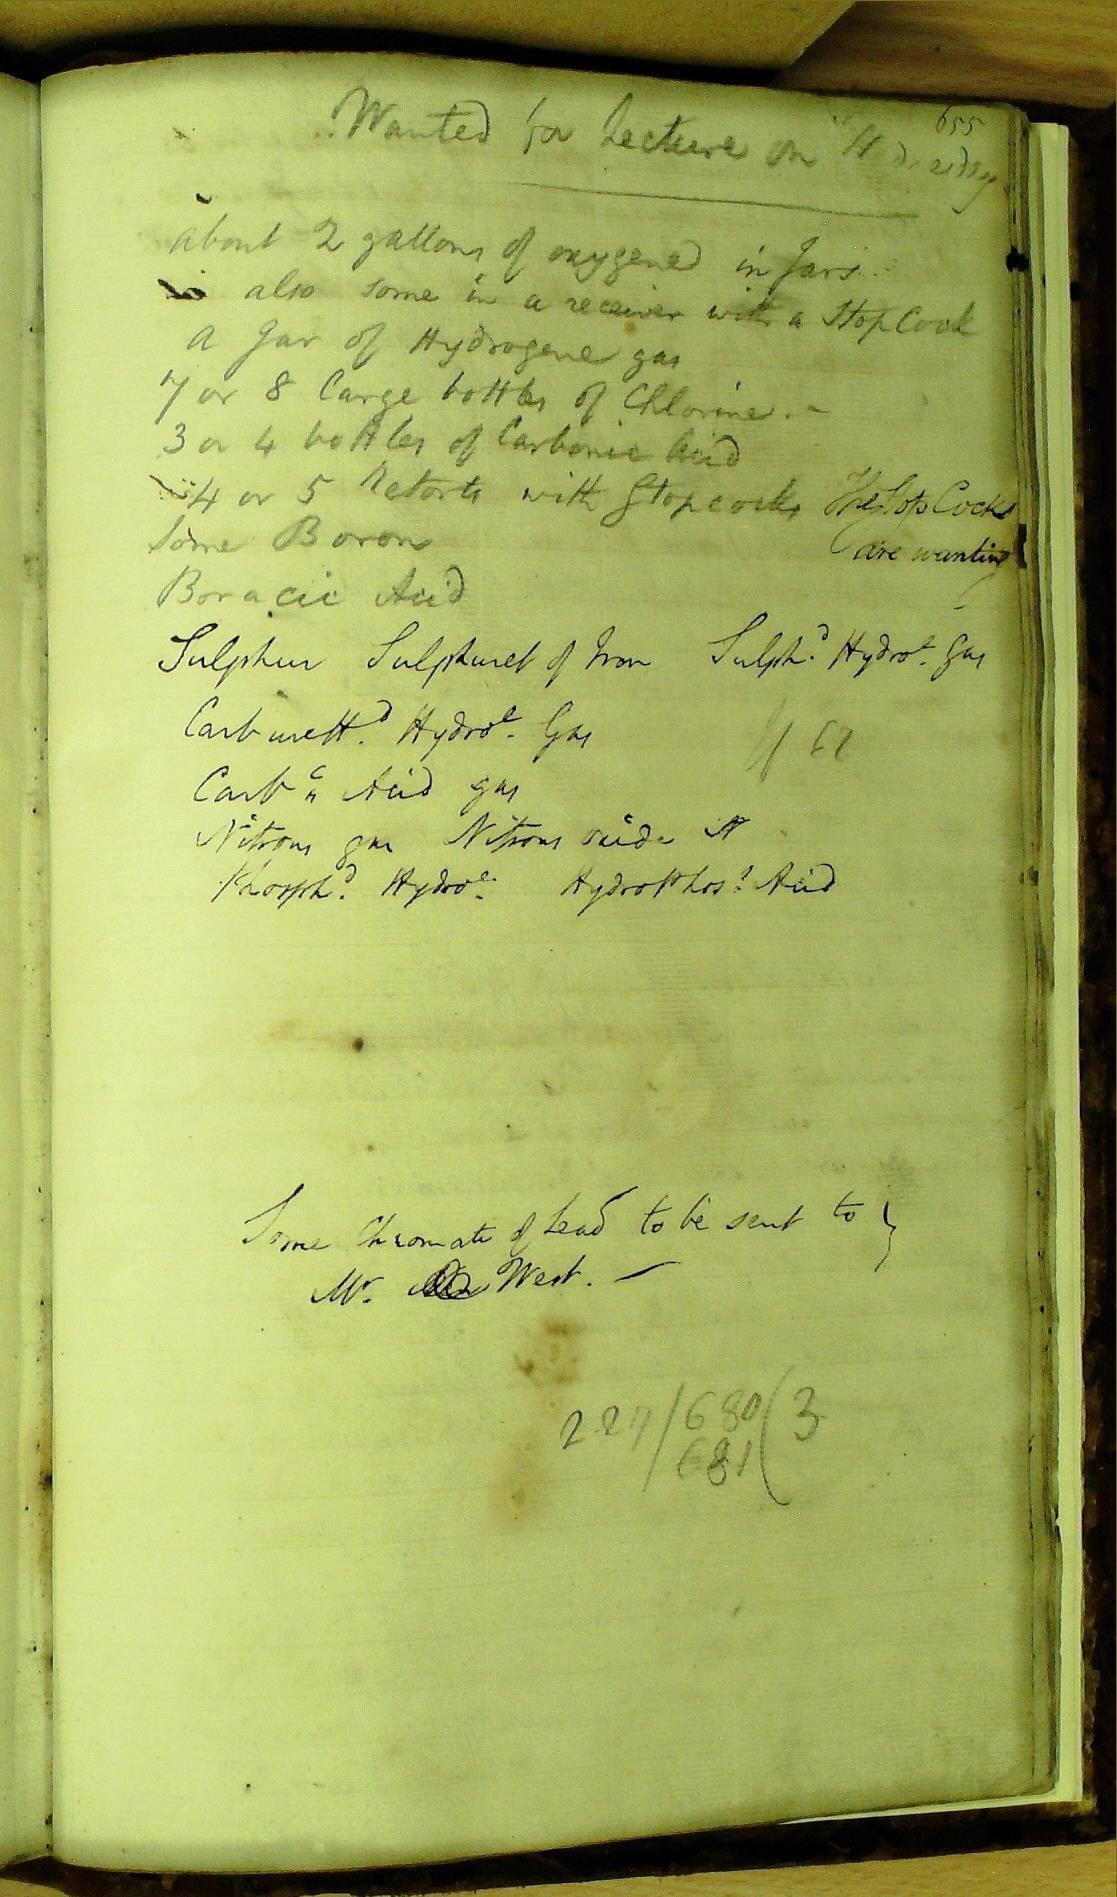 655
Wanted for Lecture on Wednesday
about 2 gallons of oxygene in Jars
also some in a receiver with a Stop Cock
a Jar of Hydrogene gas
7 or 8 large bottles of Chlorine. -
3 or 4 bottles of Carbonic Acid
4 or 5 Retorts with Stopcocks The Stop Cocks
are wanting
Some Boron
Boracic Acid
Sulphur Sulphuret of Iron Sulphd. Hydroe. Gas
Carburettd. Hydroe. Gas
Carbc. Acid gas
Nitrous gas Nitrous oxide
Phosphd. Hydroe. HydroPhoss. Acid
Some Chromate of Lead to be sent to }
Mr. West. —
227/680(3
681